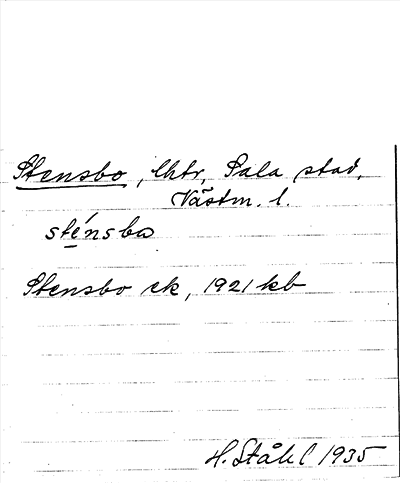 Stensbo, lhtr, Sala stad,
Västm. l.
sténsba
Stensbo ek, 1921 kb
H. Ståhl 1935